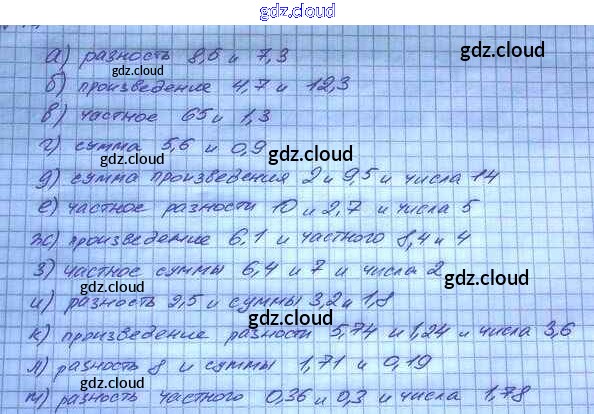 gdz.cloud
а) разность 8,6 и 7,3
б) произведение 4,7 и 12,3
в) частное 65 и 1,3
г) сумма 5,6 и 0,9
д) сумма произведения 2 и 9,5 и числа 14
е) частное разности 10 и 2,7 и числа 5
ж) произведение 6,1 и частного 8,4 и 4
з) частное суммы 6,4 и 7 и числа 2
и) разность 9,5 и суммы 3,2 и 1,8
к) произведение разности 5,74 и 1,24 и числа 3,6
л) разность 8 и суммы 1,71 и 0,19
м) разность частного 0,36 и 0,3 и числа 1,78
gdz.cloud
gdz.cloud
gdz.cloud
gdz.cloud
gdz.cloud
gdz.cloud
gdz.cloud
gdz.cloud
gdz.cloud
gdz.cloud
gdz.cloud
gdz.cloud